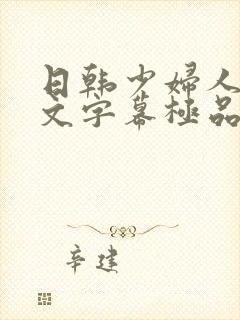 日韩少婦人
文字幕極品
辛建